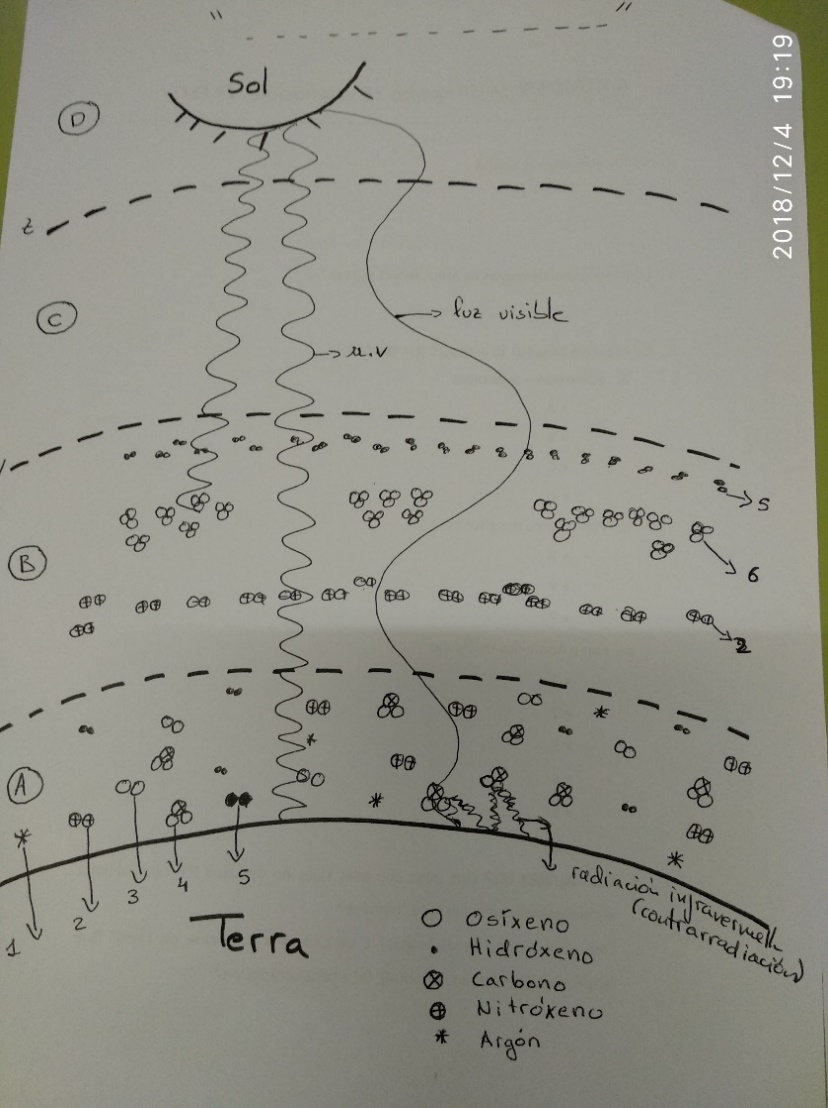 " "
2018/12/4 19:19
Sol
D
z
C
luz visible
u.v
5
6
B
2
A
1
2
3
4
5
radiación infravermella
(contrarradiación)
Terra
Osíxeno
Hidróxeno
Carbono
Nitróxeno
Argón